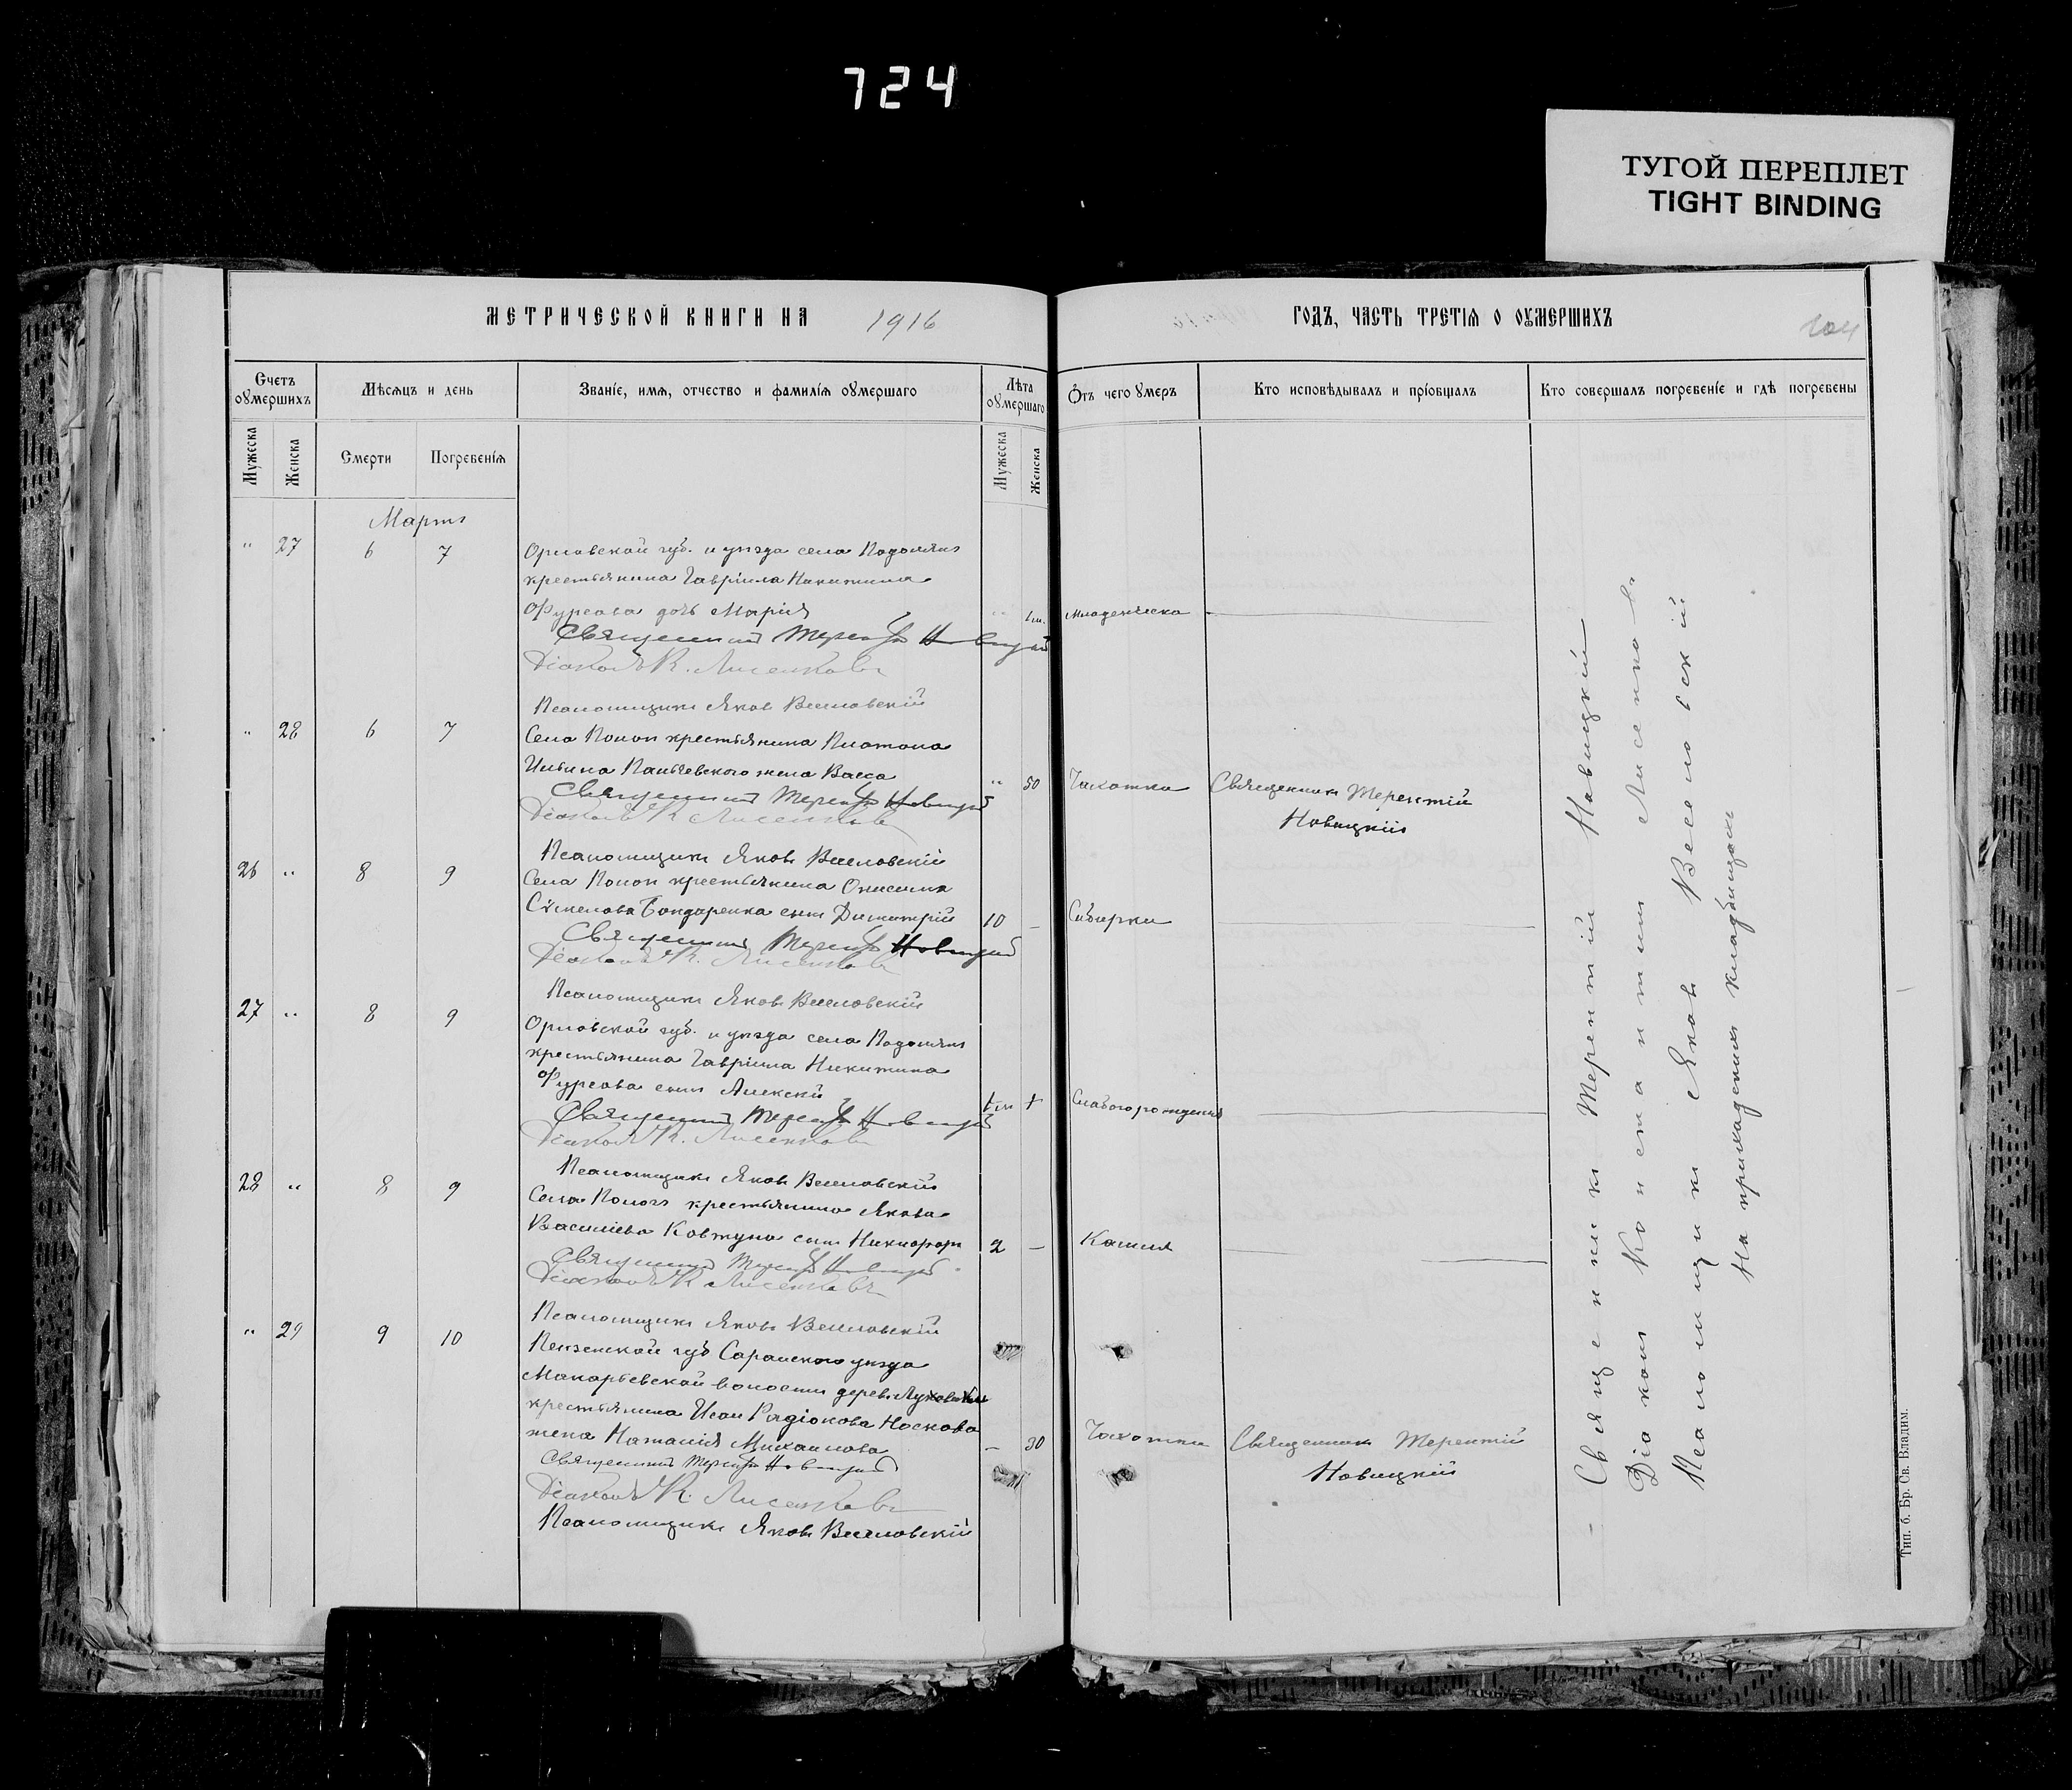 724
ТУГОЙ ПЕРЕПЛЕТ
TIGHT BINDING
МЕТРИЧЕСКОЙ КНИГИ НА 1916
ГОДЪ, ЧАСТЬ ТРЕТІЯ О ОУМЕРШИХЪ
104
Счетъ оумершихъ
Мѣсяцъ и день
Званіе, имя, отчество и фамилія оумершаго
Лѣта оумершаго
Отъ чего оумеръ
Кто исповѣдывалъ и пріобщалъ
Кто совершалъ погребеніе и гдѣ погребены
Мужеска
Женска
Смерти
Погребенія
Мужеска
Женска
Мартъ
" 27 6 7 Орловской губ. и уѣзда села
крестьянина Гавріила Никитина
Фурсова дочь Марія " 1м. Младенческа
Священникъ Терентій Новицкій
Діаконъ К. Лисенковъ
Псаломщикъ Яковъ Веселовскій
" 28 6 7 Села Пологъ крестьянина Платона
Ильина жена Васса " 50 Чахотка Священникъ Терентій
Новицкій
Священникъ Терентій Новицкій
Діаконъ К. Лисенковъ
Псаломщикъ Яковъ Веселовскій
26 " 8 9 Села Пологъ крестьянина Онисима
Бондаренка сынъ Димитрій 10 –
Священникъ Терентій Новицкій
Діаконъ К. Лисенковъ
Псаломщикъ Яковъ Веселовскій
27 " 8 9 Орловской губ. и уѣзда села
крестьянина Гавріила Никитина
Фурсова сынъ Алексѣй Слабого рожденія
Священникъ Терентій Новицкій
Діаконъ К. Лисенковъ
Псаломщикъ Яковъ Веселовскій
28 " 8 9 Села Пологъ крестьянина Якова
Василіева Ковтуна сынъ Никифоръ 2 – Кашля
Священникъ Терентій Новицкій
Діаконъ К. Лисенковъ
Псаломщикъ Яковъ Веселовскій
" 29 9 10 Пензенской губ. Саранского уѣзда
Макарьевской волости дерев.
крестьянина Носкова
жена Наталія Михаилова – 30 Чахотки Священникъ Терентій
Новицкій
Священникъ Терентій Новицкій
Діаконъ К. Лисенковъ
Псаломщикъ Яковъ Веселовскій
Священникъ Терентій Новицкій
Діаконъ Константинъ Лисенковъ
Псаломщикъ Яковъ Веселовскій
На приходскомъ кладбищѣ
Тип. б. Бр. Св. Владим.